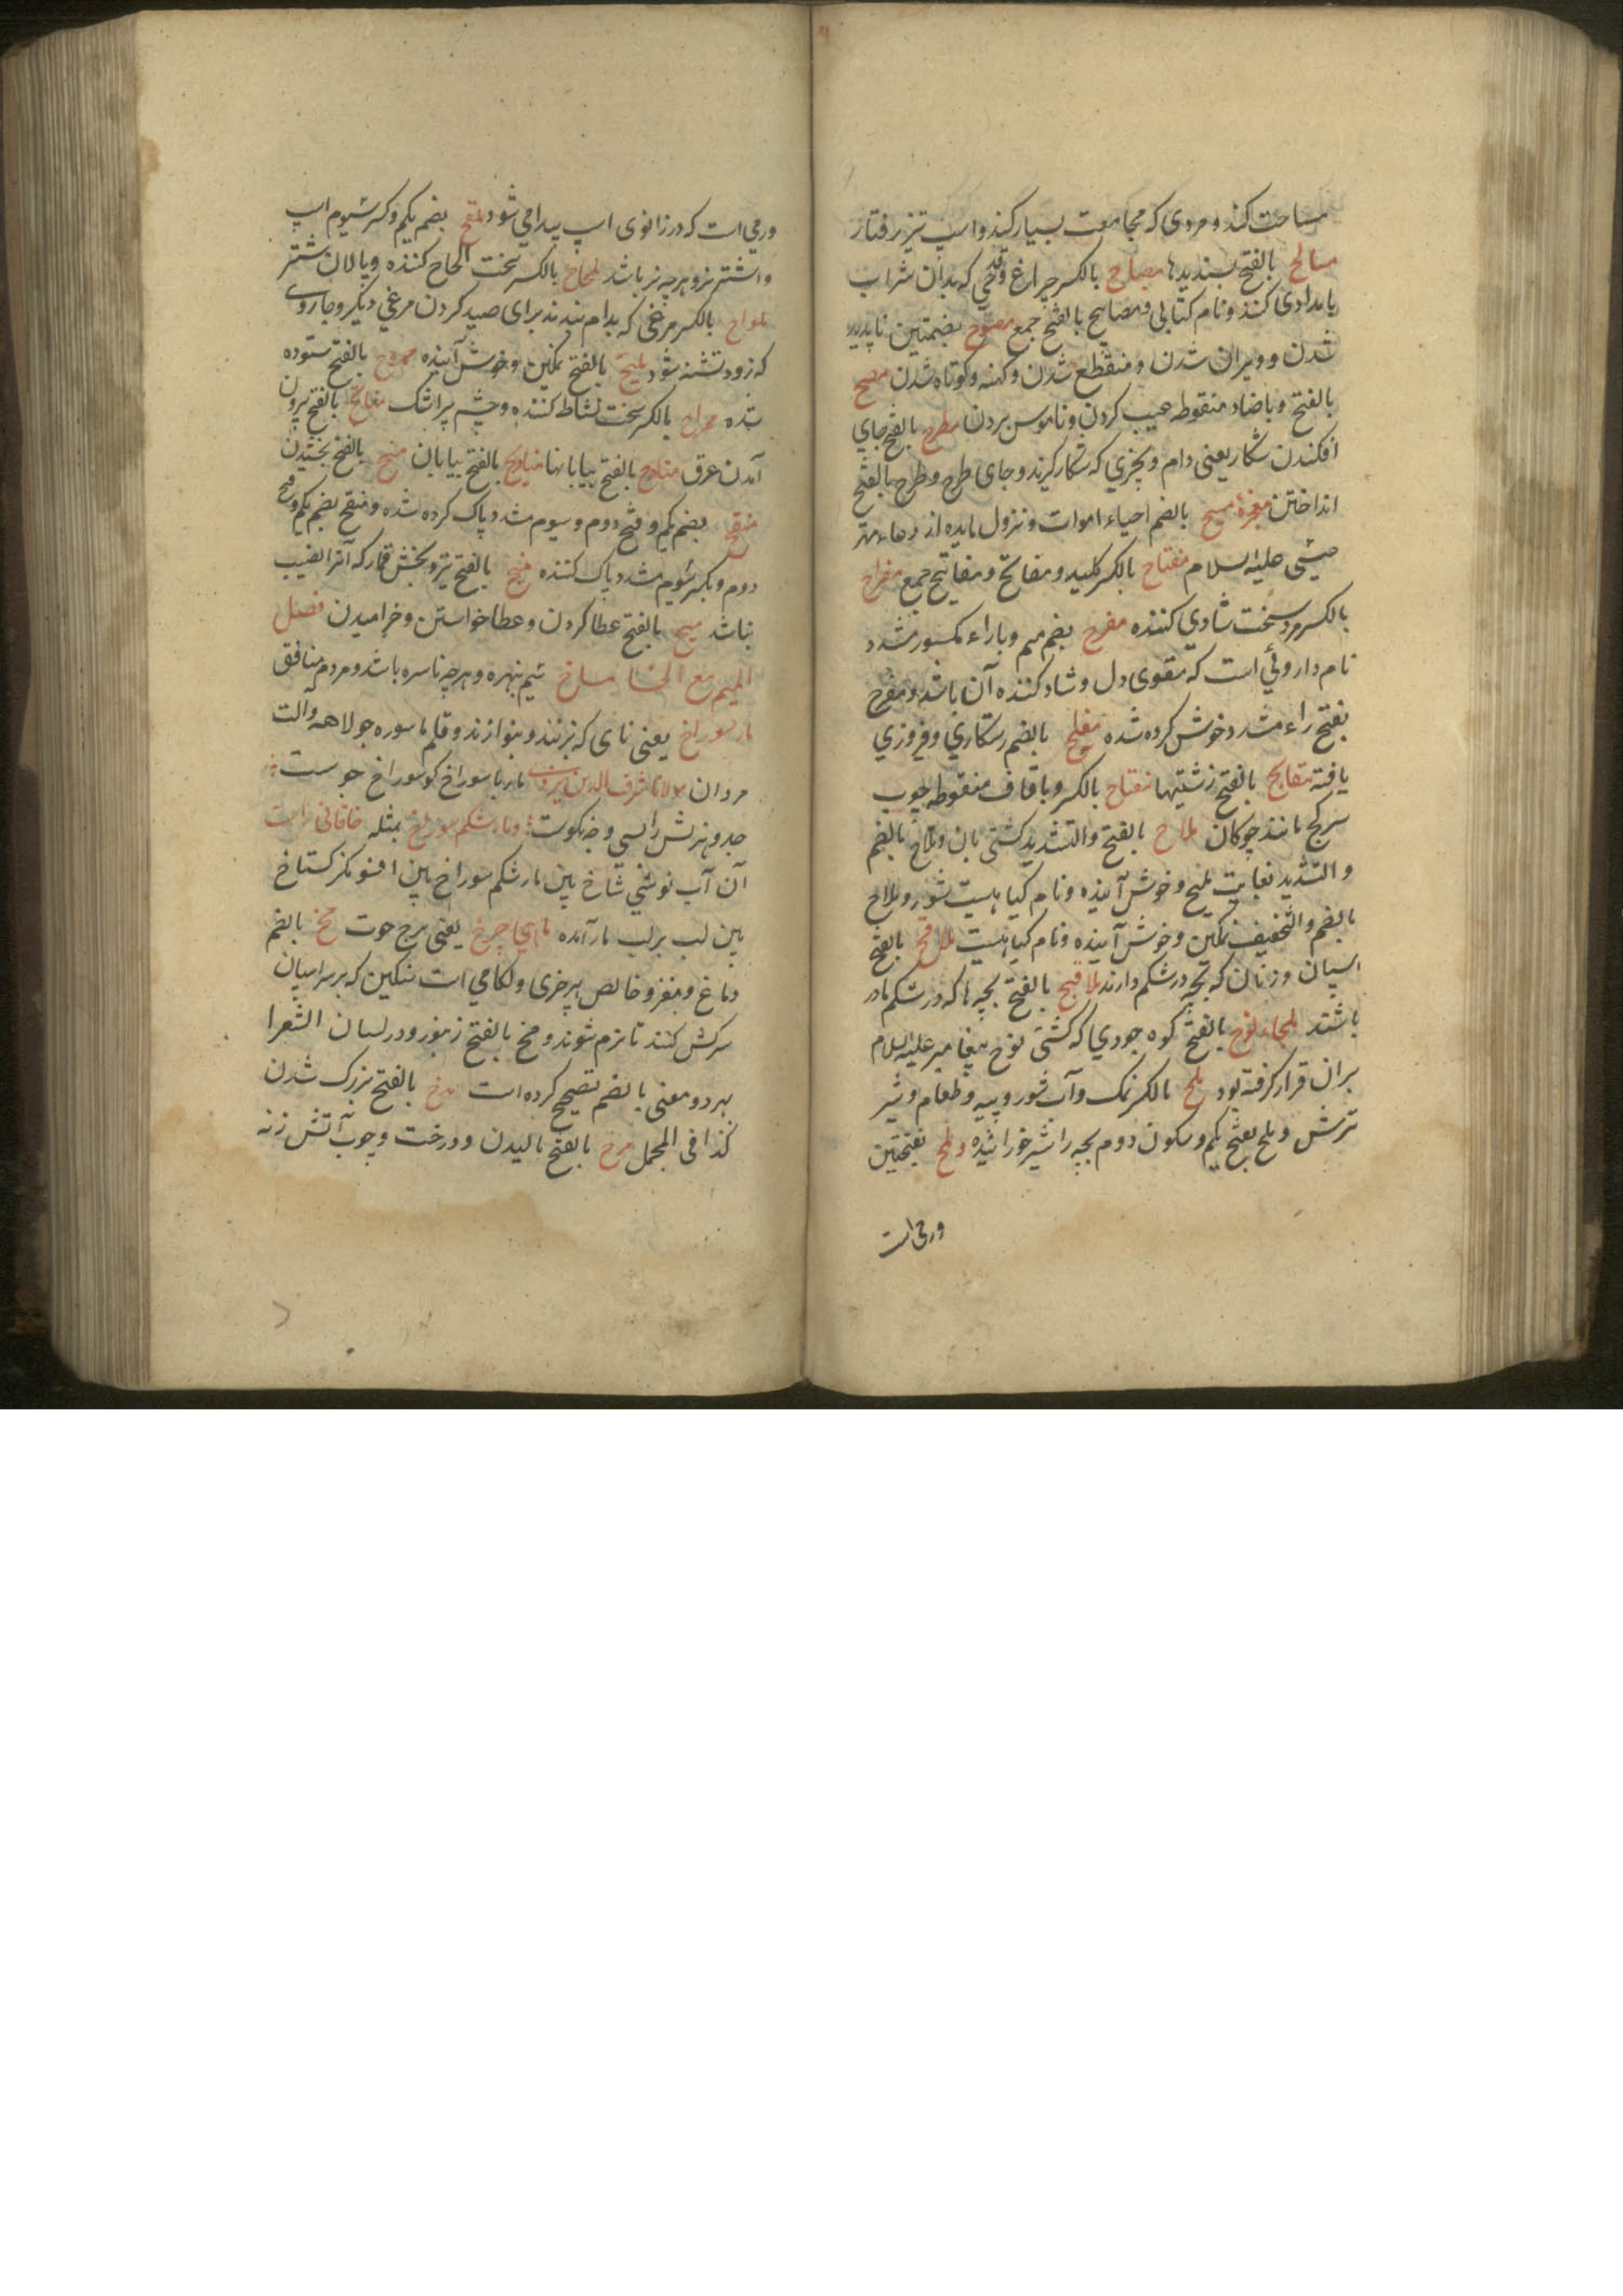 مساحت کند و مردی که مجامعت بسیار کند و اسپ تیز رفتار
مصالح بالفتح پسندیدها مصباح بالکسر چراغ و قدحی که بدان شراب
بامدادی کنند و نام کتابی و مصابیح بالفتح جمع مصوح بضمتین ناپدید
شدن و ویران شدن و منقطع شدن و کهنه و کوتاه شدن مضح
بالفتح و باضاد منقوطه عیب کردن و ناموس بردن مطرح بالفتح جای
افکندن شکار یعنی دام و چیزی که شکار گیرند و جای طرح و طرح بالفتح
انداختن معجزهٔ مسیح بالضم احیاء اموات و نزول مایده از دعاء مهتر
عیسی علیه السلام مفتاح بالکسر کلید و مفاتح و مفاتیح جمع مفراح
بالکسر مرد سخت شادی کننده مفرح بضم میم و باراء مکسور مشدد
نام داروئی است که مقوی دل و شاد کننده آن باشد و مفرح
بفتح راء مشدد خوش کرده شده مفلح بالضم رستکاری و فیروزی
یافته مقابح بالفتح زشتیها مفتاح بالکسر و باقاف منقوطه چوب
سرکج مانند چوکان ملاح بالفتح والتشدید کشتی بان و ملاح بالضم
والتشدید بغایت ملیح و خوش آینده و نام کیاهیست شور و ملاح
بالضم والتخفیف نمکین و خوش آینده و نام کیاهیست ملاقح بالفتح
اسپان و زنان که بچه در شکم دارند ملاقیح بالفتح بچه ها که در شکم مادر
باشند ملجاء نوح بالفتح کوه جودی که کشتی نوح پیغامبر علیه السلام
بران قرار کرفته بود ملح بالکسر نمک و آب شور و پیه و طعام و شیر
ترش و ملح بفتح یکم و سکون دوم بچه را شیر خورانیده و ملح بفتحتین
ورمی است
ورمی است که در زانوی اسپ پیدا می شود ملقح بضم یکم و کسر سیوم اسپ
و اشتر نر و هرچه نر باشد ملحاح بالکسر سخت الحاح کننده و پالان شتر
ملواح بالکسر مرغی که بدام بندند برای صید کردن مرغی دیکر و جاروی
که زود تشنه شود ملیح بالفتح نمکین و خوش آینده ممدوح بالفتح ستوده
شده ممراح بالکسر سخت نشاط کننده و چشم پر اشک مناتح بالفتح بیرون
آمدن عرق منادح بالفتح بیابانها منادیح بالفتح بیابان منح بالفتح بخشیدن
منقح بضم یکم و فتح دوم و سیوم مشدد پاک کرده شده و منقح بضم یکم و فتح
دوم و بکسر سیوم مشدد پاک کننده منیح بالفتح تیر و بخش قمار که آنرا نصیب
نباشد میح بالفتح عطا کردن و عطا خواستن و خرامیدن فصل
المیم مع الخا ماخ سیم نبهره و هرچه ناسره باشد و مردم منافق
مارسوراخ یعنی نای که بزنند و بنوازند و قلم ماسوره جولاهه و آلت
مردان مولانا شرف الدین مار با سوراخ کو سوراخ جوست
جد و نرش را بسی وجه نکوست و مارشکم سوراخ بمثله خاقانی راست
آن آب نوشتی شاخ بین مار شکم سوراخ بین افسونکر کستاخ
بین لب بر لب مار آمده ماهی چرخ یعنی برج حوت مخ بالضم
دماغ و مغز و خالص هر چیزی و لکامی است سنکین که بر سر اسپان
سرکش کنند تا نرم شوند و مخ بالفتح زنبور و در لسان الشعرا
بهر دو معنی بالضم تصحیح کرده است مدخ بالفتح بزرک شدن
کذا فی المجمل مرخ بالفتح مالیدن و درخت و چوب آتش زنه